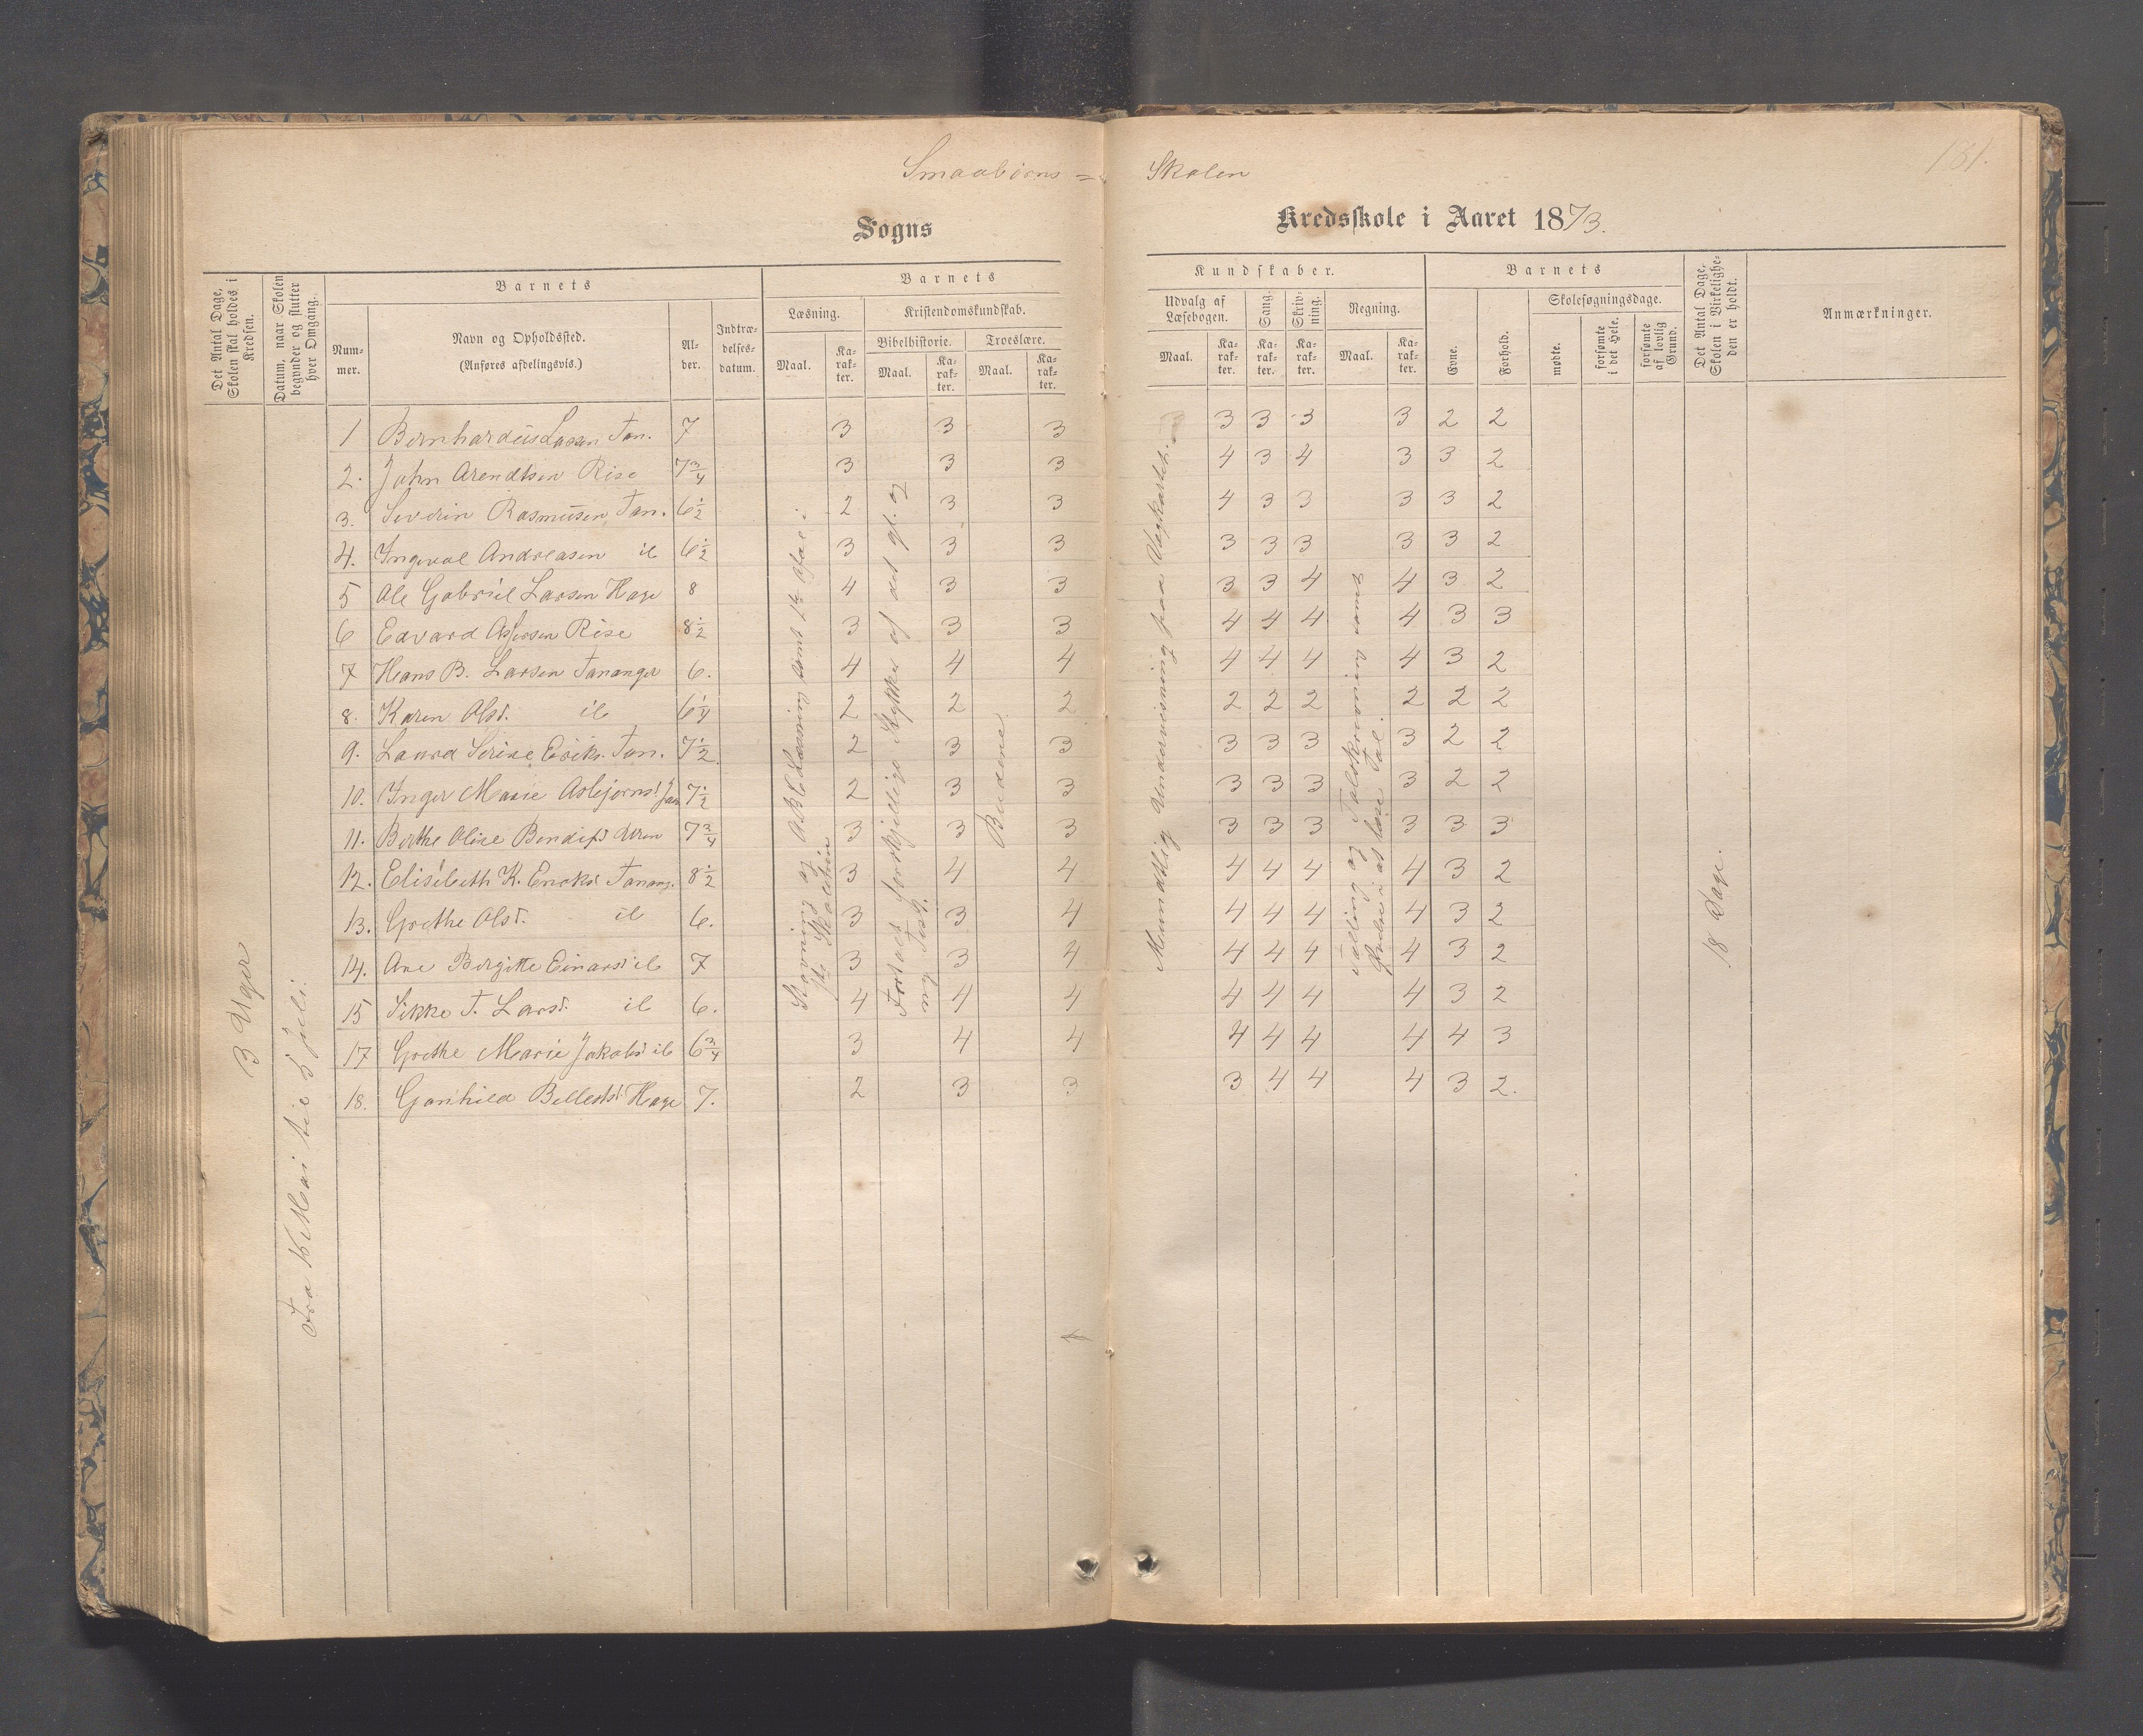 Smaabørns = Skolen
131.
Sogns Kredsskole i Aaret 1873.
Det Antal Dage, Skolen skal holdes i Kredsen.
Datum, naar Skolen begynder og slutter hver Omgang.
Barnets
Nummer.
Navn og Opholdssted.
(Anføres afdelingsvis.)
Alder.
Indtrædelsesdatum.
Barnets
Læsning.
Maal.
Karakter.
Kristendomskundskab.
Bibelhistorie.
Maal.
Karakter.
Troeslære.
Maal.
Karakter.
Kundskaber.
Udvalg af Læsebogen.
Maal.
Karakter.
Sang.
Karakter.
Skrivning.
Karakter.
Regning.
Maal.
Karakter.
Barnets
Evne.
Forhold.
Skolesøgningsdage.
mødte.
forsømte i det Hele.
forsømte af lovlig Grund.
Det Antal Dage, Skolen i Virkeligheden er holdt.
Anmærkninger.
3 Uger
Fra 16 Mai til 5 juli.
1 Bernhardus Lassen Tan. 7 3 3 3 3 3 3 3 2 2
2. John Arendtsen Rise 7 3/4 3 3 3 4 3 4 3 3 2
3. Severin Rasmusen Tan. 6 1/2 2 3 3 4 3 3 3 3 2
4. Ingval Andreasen il 6 1/2 3 3 3 3 3 3 3 3 2
5 Ole Gabriel Larsen Hage 8 4 3 3 3 3 4 4 3 2
6 Edvard Rise 8 1/2 3 3 3 4 4 4 4 3 3
7 Hans B. Larsen Tananger 6. 4 4 4 4 4 4 4 3 2
8. Karen Olsd. il 6 1/4 2 2 2 2 2 2 2 2 2
9. Laura Serine Eriks. Tan. 7 1/2 2 3 3 3 3 3 3 2 2
10. Inger Marie Asbjornsd. Tan 7 1/2 2 3 3 3 3 3 3 2 2
11. Berthe Oline 7 3/4 3 3 3 3 3 3 3 3 3
12. Elisebeth K. Ericksd Tanang. 8 1/2 3 4 4 4 4 4 4 3 2
13. Grethe Olsd. il 6. 3 3 4 4 4 4 4 3 2
14. Ane Bergitte Einarsd il 7 3 3 4 4 4 4 4 3 2
15 Sikke T. Larsd. il 6. 4 4 4 4 4 4 4 3 2
17 Grethe Marie Jakobsd il 6 3/4 3 4 4 4 4 4 4 4 3
18. Gunhild Hage 7. 2 3 3 3 4 4 4 3 2.
Stavning og ABC Læsning samt 1te Afdel i
Fortalt forskjellige Stykker af det gl. og
ny Test.
Budene
Mundtlig Undervisning paa Vægkartet.
Tælling og Talskrivning samt
Øvelse i at læse Tal.
18 Dage.